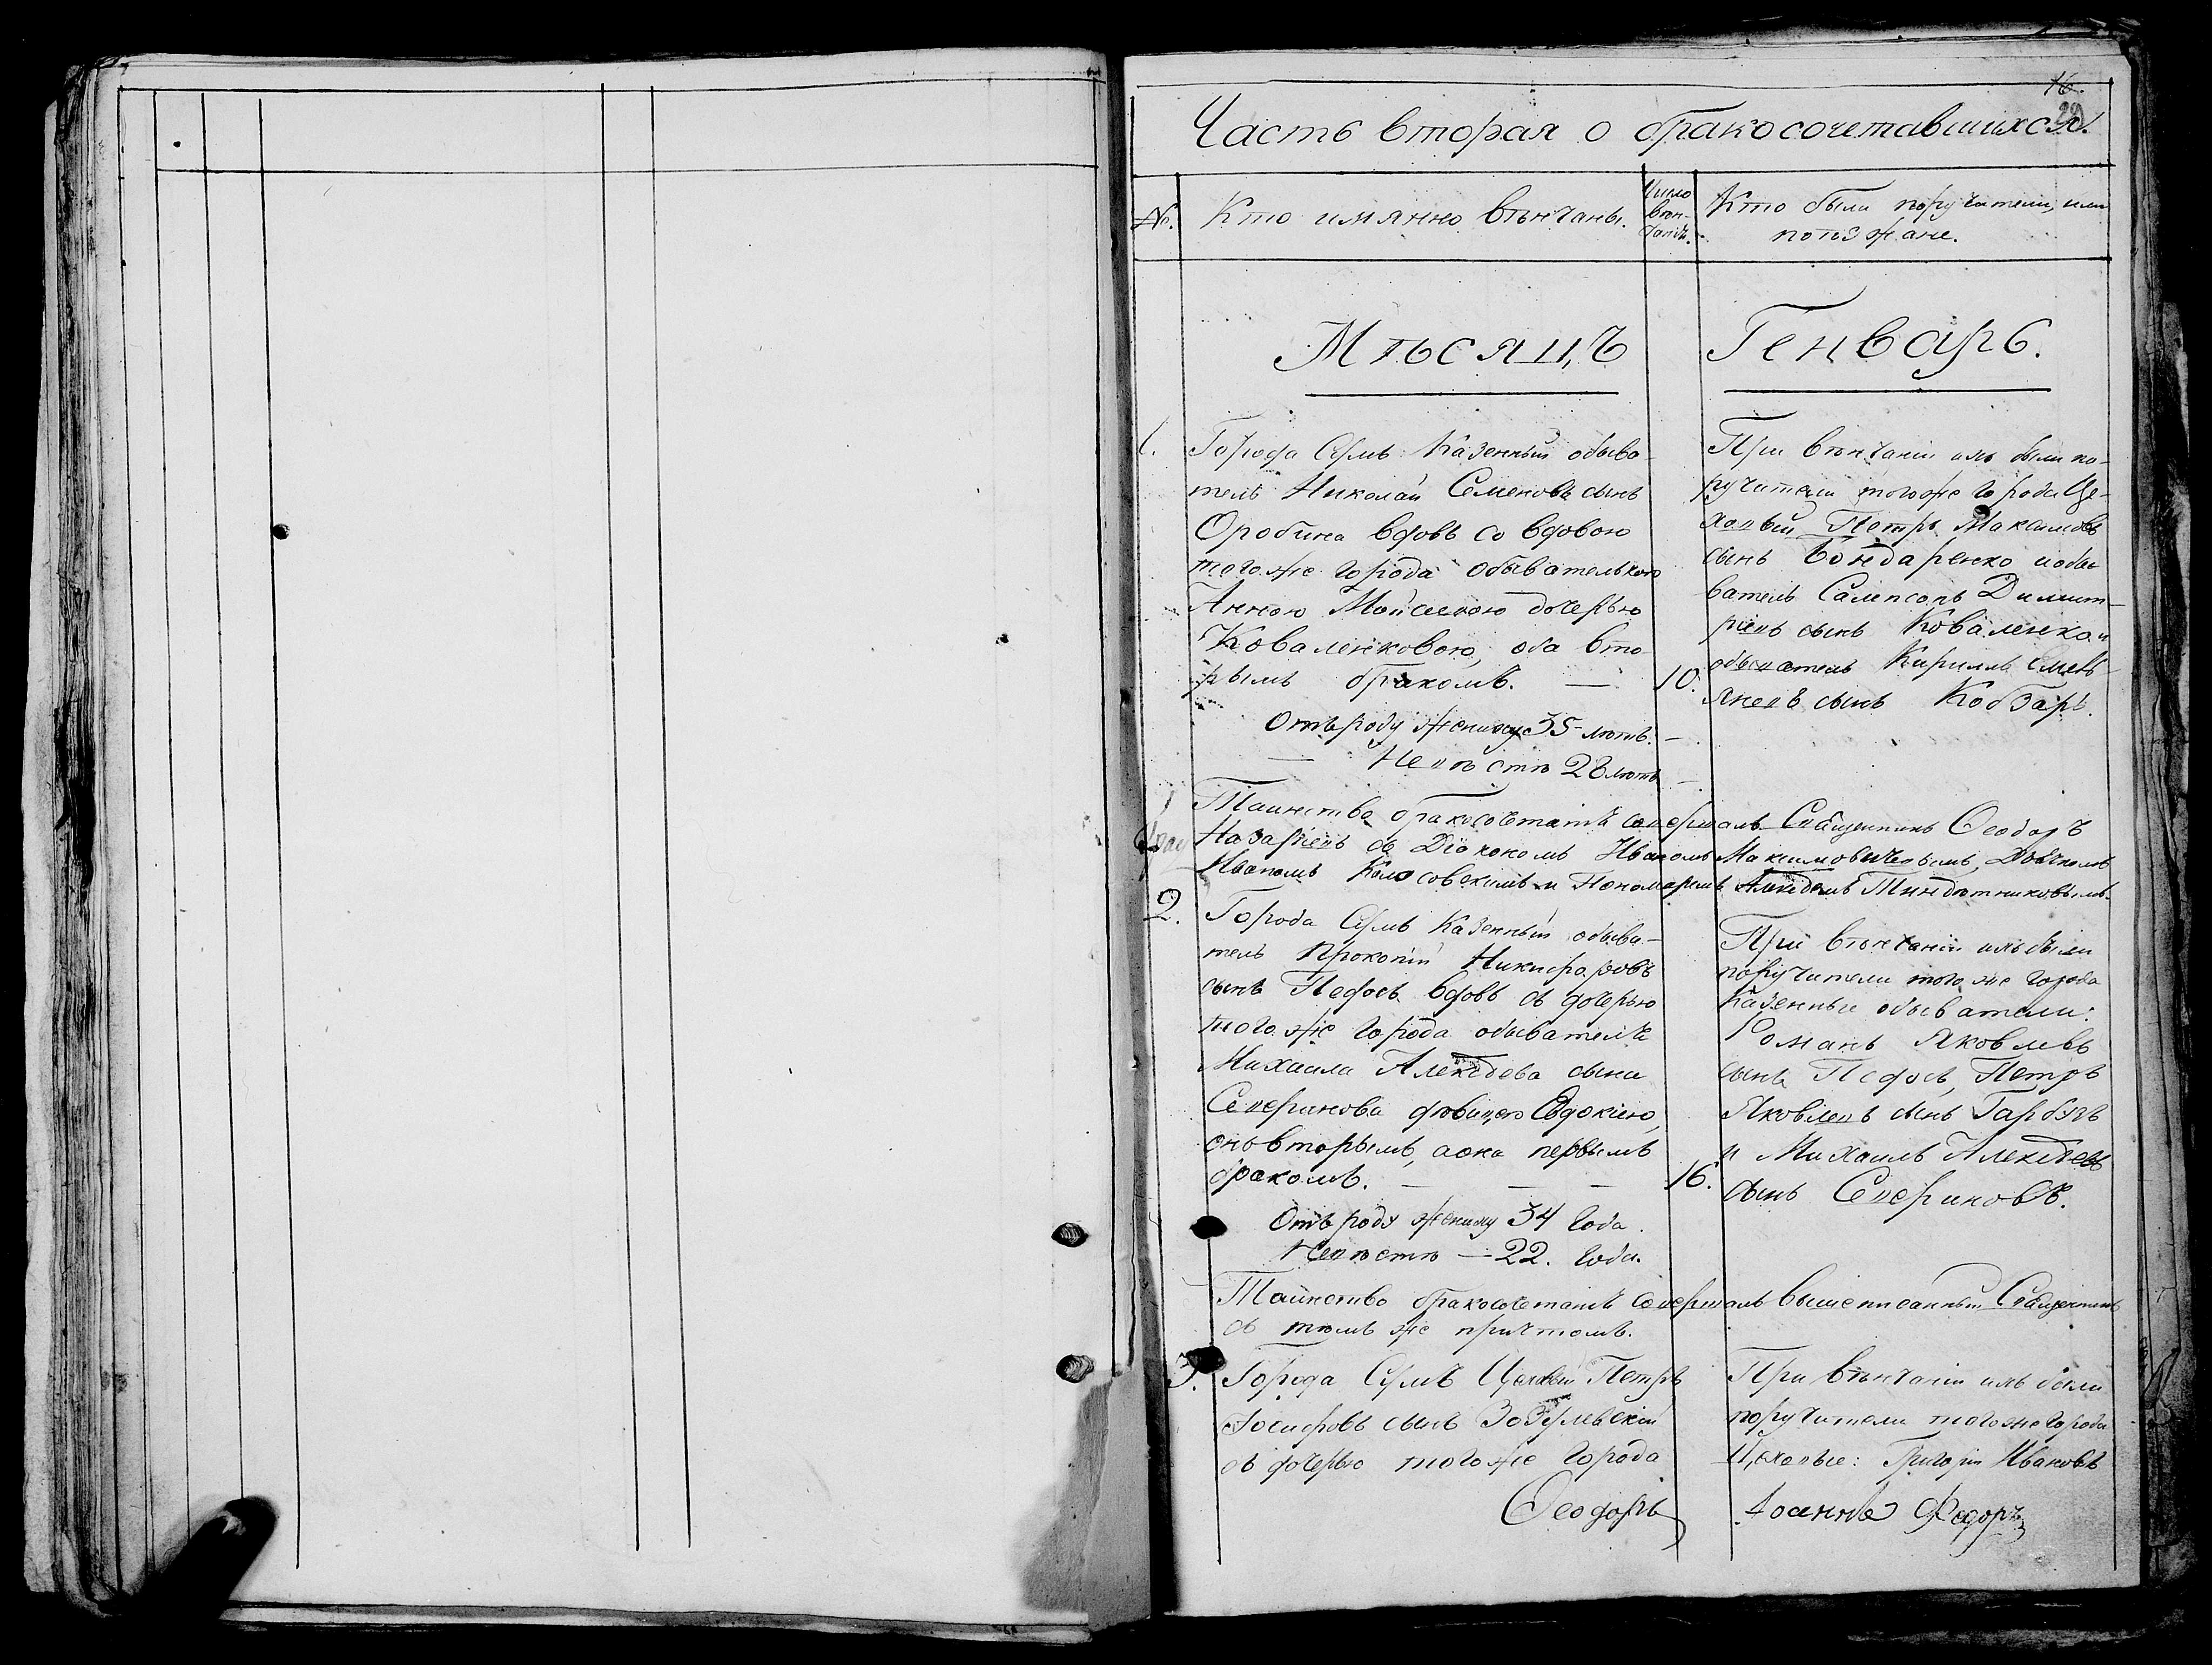 16.
Часть вторая о бракосочетавшихся.
№.
Кто имянно вѣнчаны.
Число
вѣн-
чанія.
Кто были поручители, или
поѣзжане.
Мѣсяцъ
Генварь.
1.
Города Сумъ Казенный обыва-
тель Николай Семеновъ сынъ
вдовъ со вдовою
того же города обывателькою
Анною дочерью
Коваленковою, оба вто-
рымъ бракомъ. —
10.
Отъ роду жениху 35 лѣтъ. —
— Невѣстѣ 28 лѣтъ —
При вѣнчаніи ихъ были по-
ручители того же города Це-
ховый Петръ Максимовъ
сынъ Бондаренко и обы
ватель Сампсонъ Димит-
ріевъ сынъ Коваленко и
обыватель Кириллъ Емель-
яновъ сынъ Кобзарь.
Таинство бракосочетанія совершалъ Священникъ Ѳеодоръ
Назаріевъ съ Діакономъ Иваномъ Максимовичевымъ, Дьячкомъ
Иваномъ Колосовскимъ и Пономаремъ
2.
Города Сумъ Казенный обыва-
тель Прокопій Никифоровъ
сынъ вдовъ съ дочерью
того же города обывателя
Михаила Алексѣева сына
Северинова дѣвицею Евдокіею,
онъ вторымъ, а она первымъ
бракомъ. — — —
16.
Отъ роду жениху 34 года.
Невѣстѣ — 22. года.
При вѣнчаніи ихъ были
поручители того же города
казенные обыватели:
Романъ Яковлевъ
сынъ Петръ
Яковлевъ сынъ Гарбузъ
и Михаилъ Алексѣевъ
сынъ Севериновъ.
Таинство бракосочетанія совершалъ вышеписанный Священникъ
съ тѣмъ же причтомъ.
3.
Города Сумъ Цеховый Петръ
Іосифовъ сынъ Зозулевскій
съ дочерью того же города
При вѣнчаніи ихъ были
поручители того же города
Цеховые: Григорій Ивановъ
Ѳеодоръ
Іоаннъ Ѳедоръ